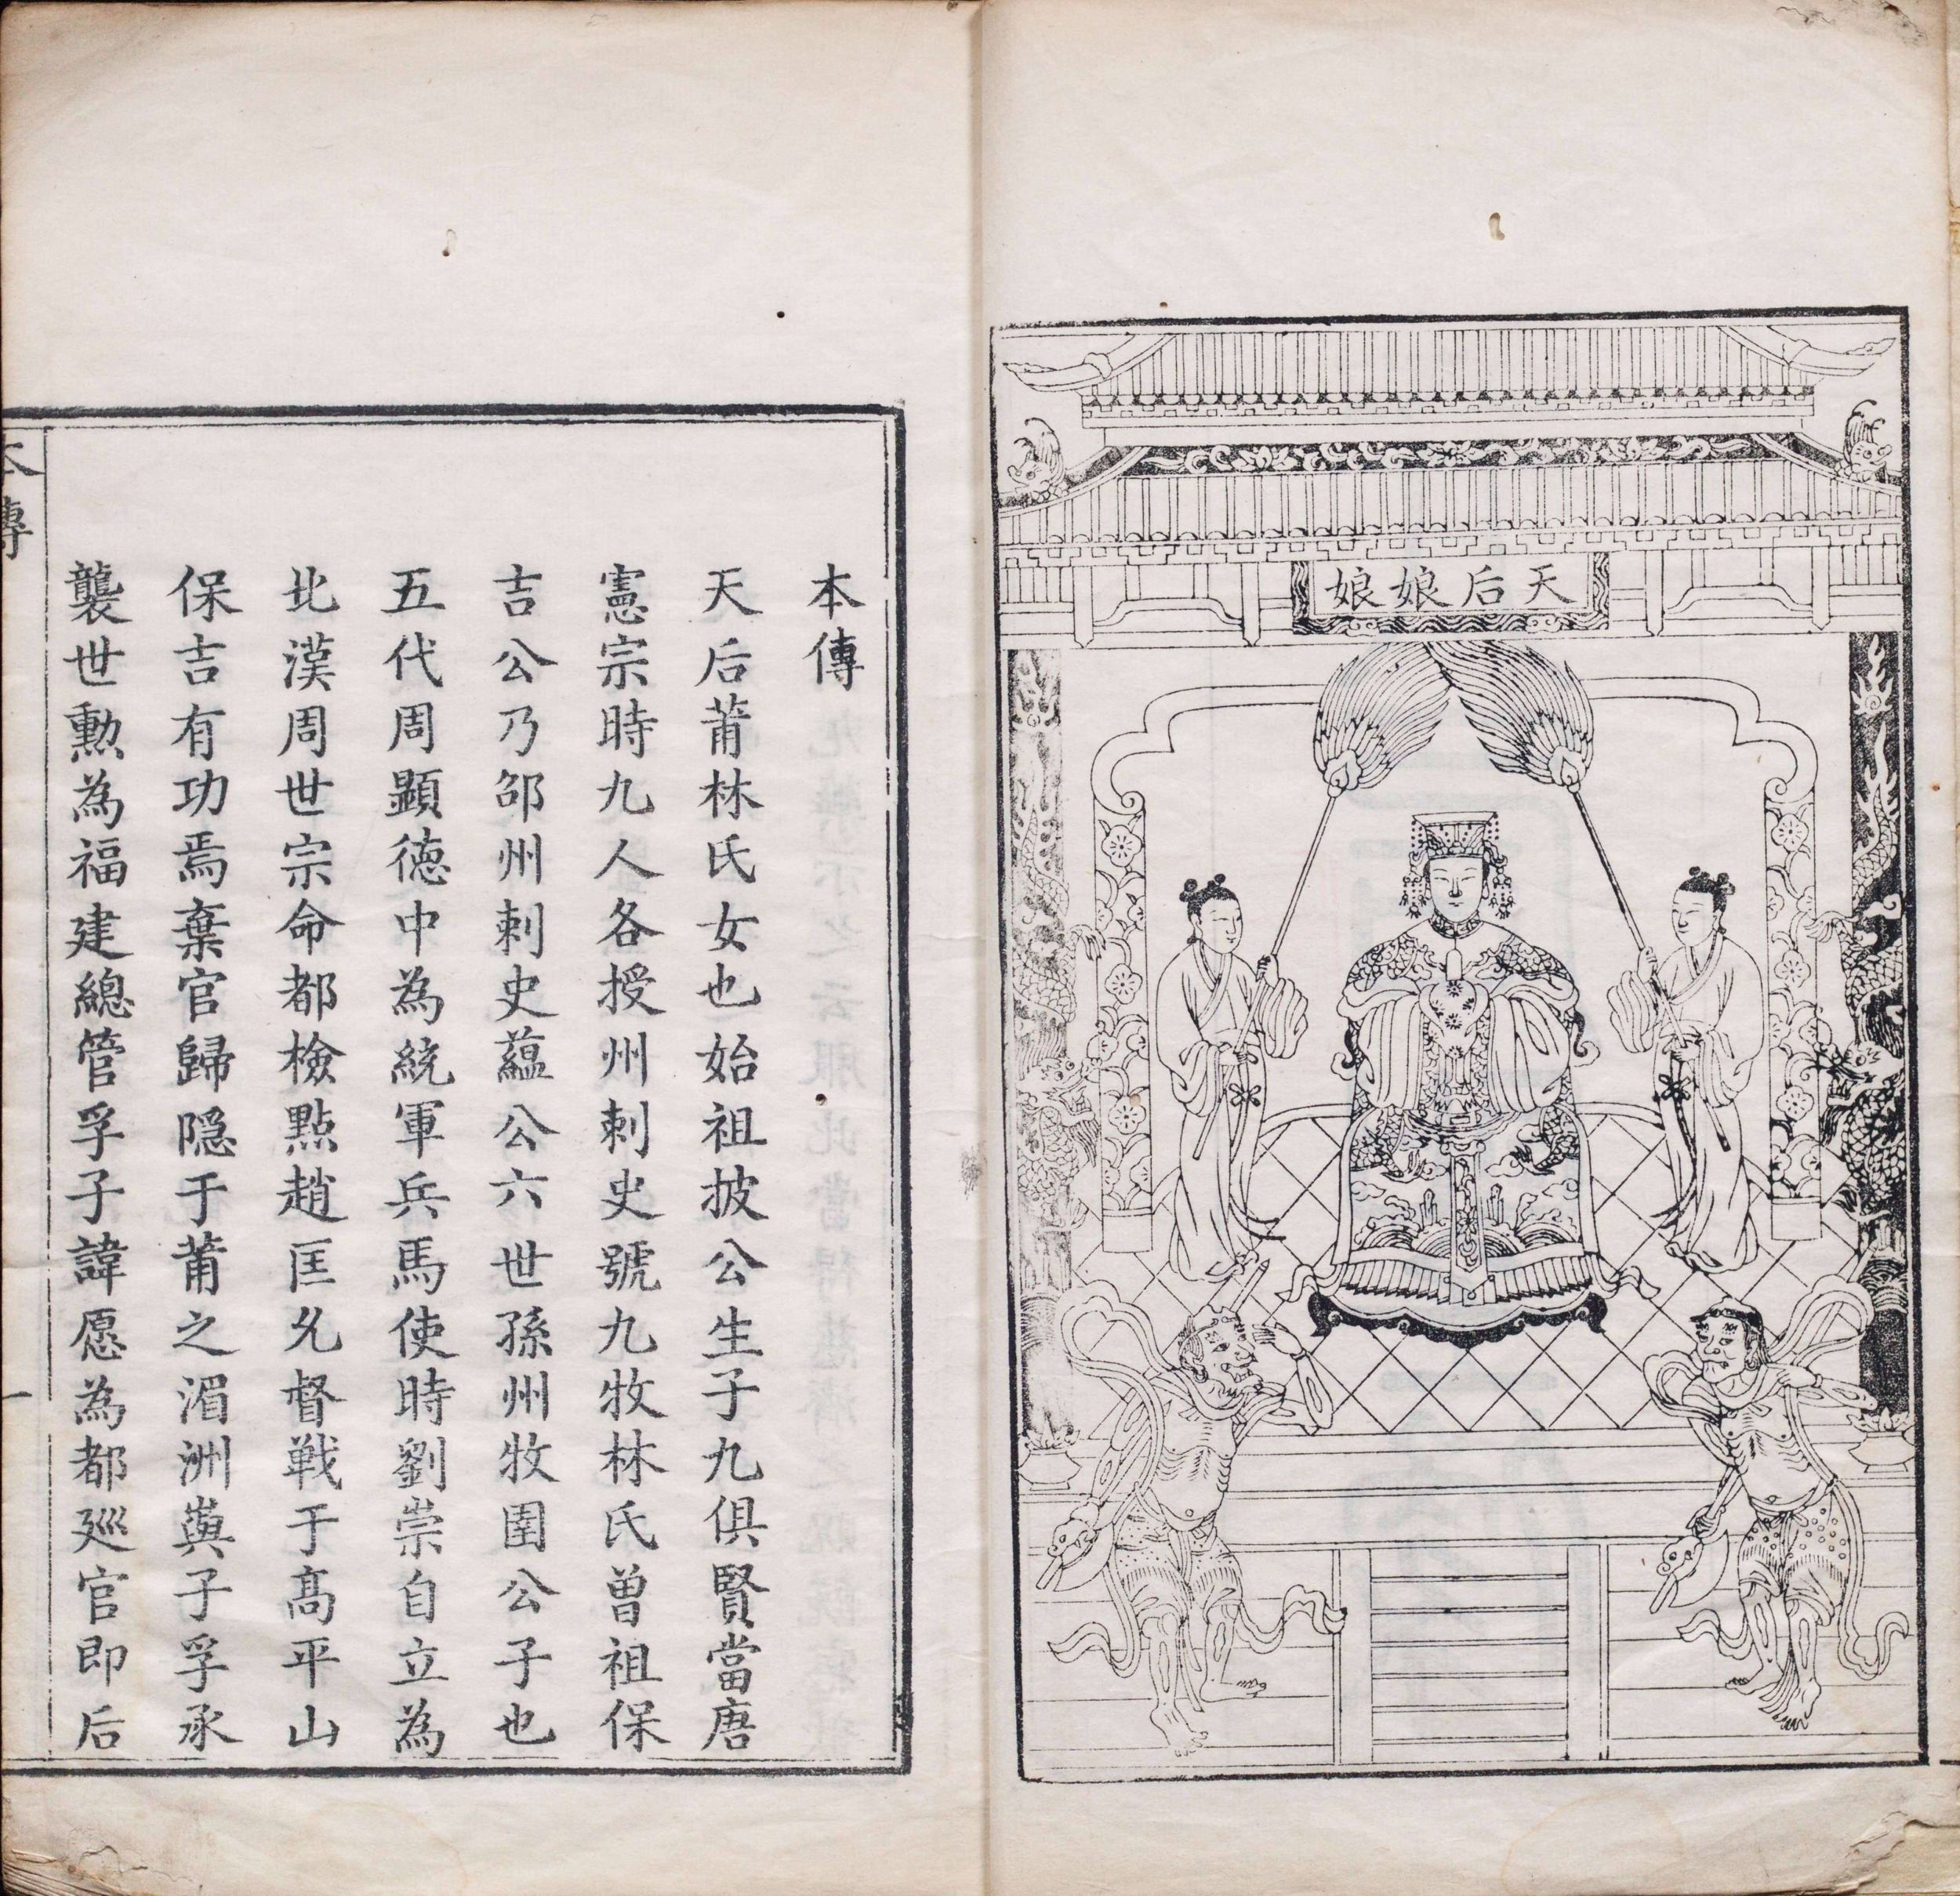 天后娘娘
本傳
天后莆林氏女也始祖披公生子九俱賢當唐
憲宗時九人各授州刺史號九牧林氏曾祖保
吉公乃邵州刺史蘊公六世孫州牧圉公子也
五代周顯德中為統軍兵馬使時劉崇自立為
北漢周世宗命都檢點趙匡𠃔督戰于高平山
保吉有功焉棄官歸隱于莆之湄洲嶼子孚承
襲世勲為福建總管孚子諱愿為都廵官即后
本傳
一